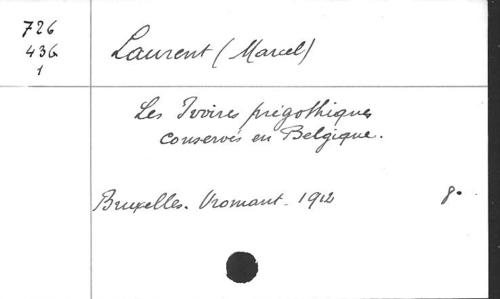 726
436
1
Laurent (Marcel)
Les Ivoires prégothiques
conservés en Belgique.
Bruxelles. Vromant. 1912 8°